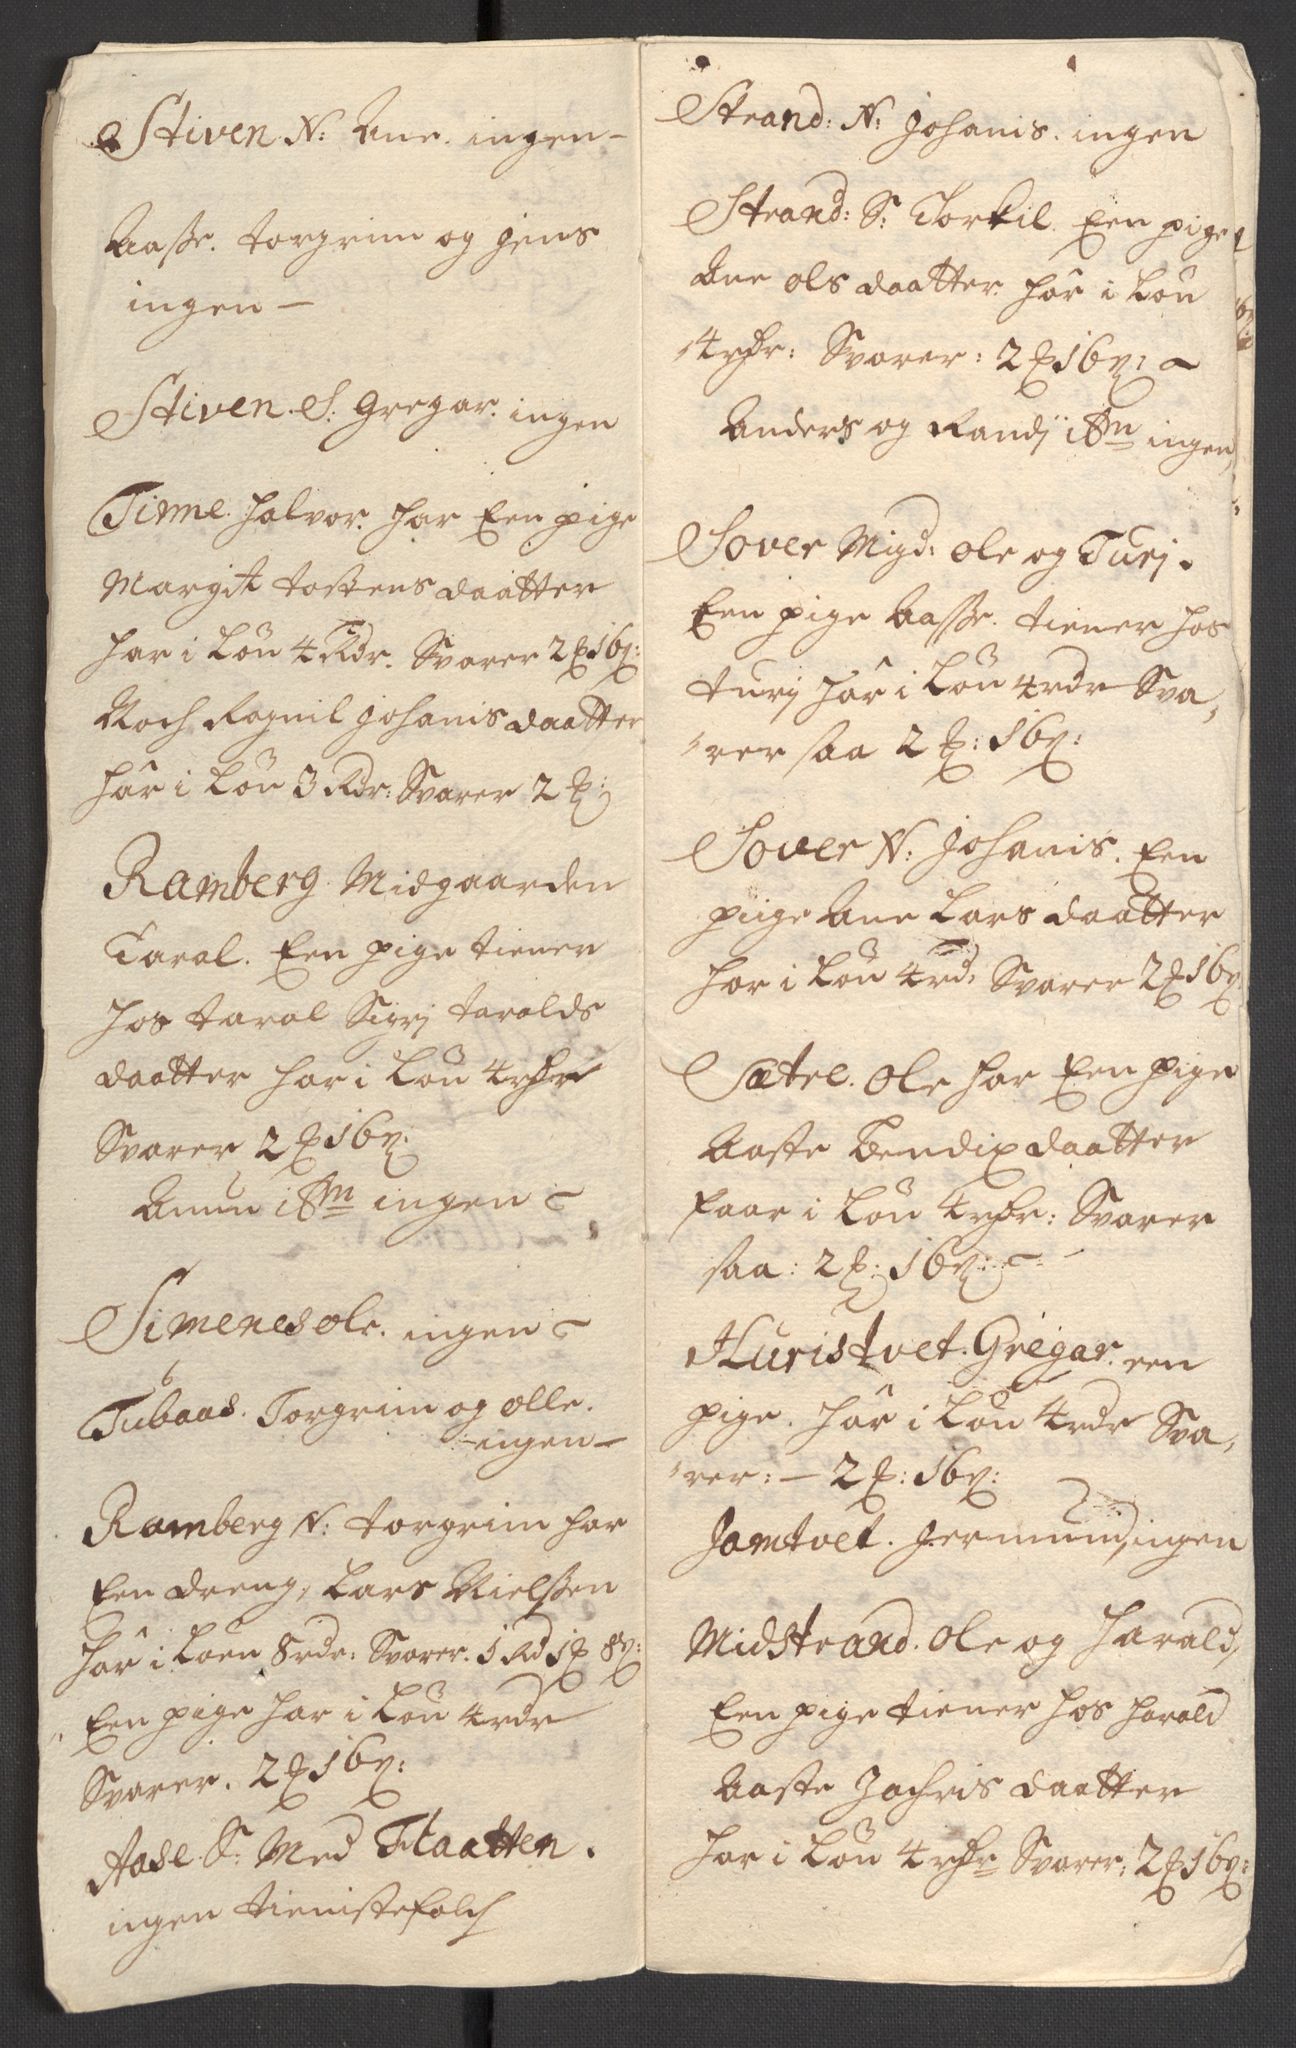 Stiven N: Ane. ingen –
Aasße. torgrim og Jens
ingen –
Stiven. S: Gregar. ingen
Tinne. Halvor. har Een pige
Margit tostens daatter
har i Lön 4 Rdr. Svarer 2 ß 16 ẞ:
Noch Ragnil Johanis daatter
har i Lön 3 Rdr: Svarer 2 ß:
Ramberg. Midgaarden
Taral. Een pige tiener
hos taral Sigrj taralds
daatter har i Lön 4 rdr
Svarer 2 ß 16 ẞ:
Amun ibm ingen –
Simenes ole. ingen –
Tubaas. Torgrim og olle.
ingen –
Ramberg N: torgrim har
Een dreng, Lars Nielßen
har i Löen 8 rdr: Svarer. 1 Rd 1 ß 8 ẞ:
Een pige har i Lön 4 rdr
Svarer. 2 ß 16 ẞ:
Aase. S: Med Flaatten.
ingen tienistefolch
Strand: N: Johanis. ingen
Strand: S: Torkil. Een pige
Ane ols daatter har i Lön
4 rdr: Svarer: 2 ß 16 ẞ: –
Anders og Randj ibm ingen
Sover Migd: ole og Turj.
Een pige Aasße. tiener hos
turj har i Lön 4 rdr Sva,
,rer saa 2 ß: 16 ẞ:
Sover N: Johanis. Een
piige Ane Lars daatter
har i Lön 4 rd: Svarer 2 ß 16 ẞ
Sætre. Ole har Een pige
Aaste Bendix daatter
faar i Lön 4 rdr: Svarer
saa: 2 ß: 16 ẞ: –
Huristvet. Gregar. een
pige. har i Lön 4 rdr Sva,
,rer: – 2 ß: 16 ẞ:
Jamtvet. Jermund, ingen
Midstrand. Ole og Harald,
Een pige tiener hos harald
Aaste Zachris daatter
har i Lön 4 rdr Svarer: 2 ß 16 ẞ: